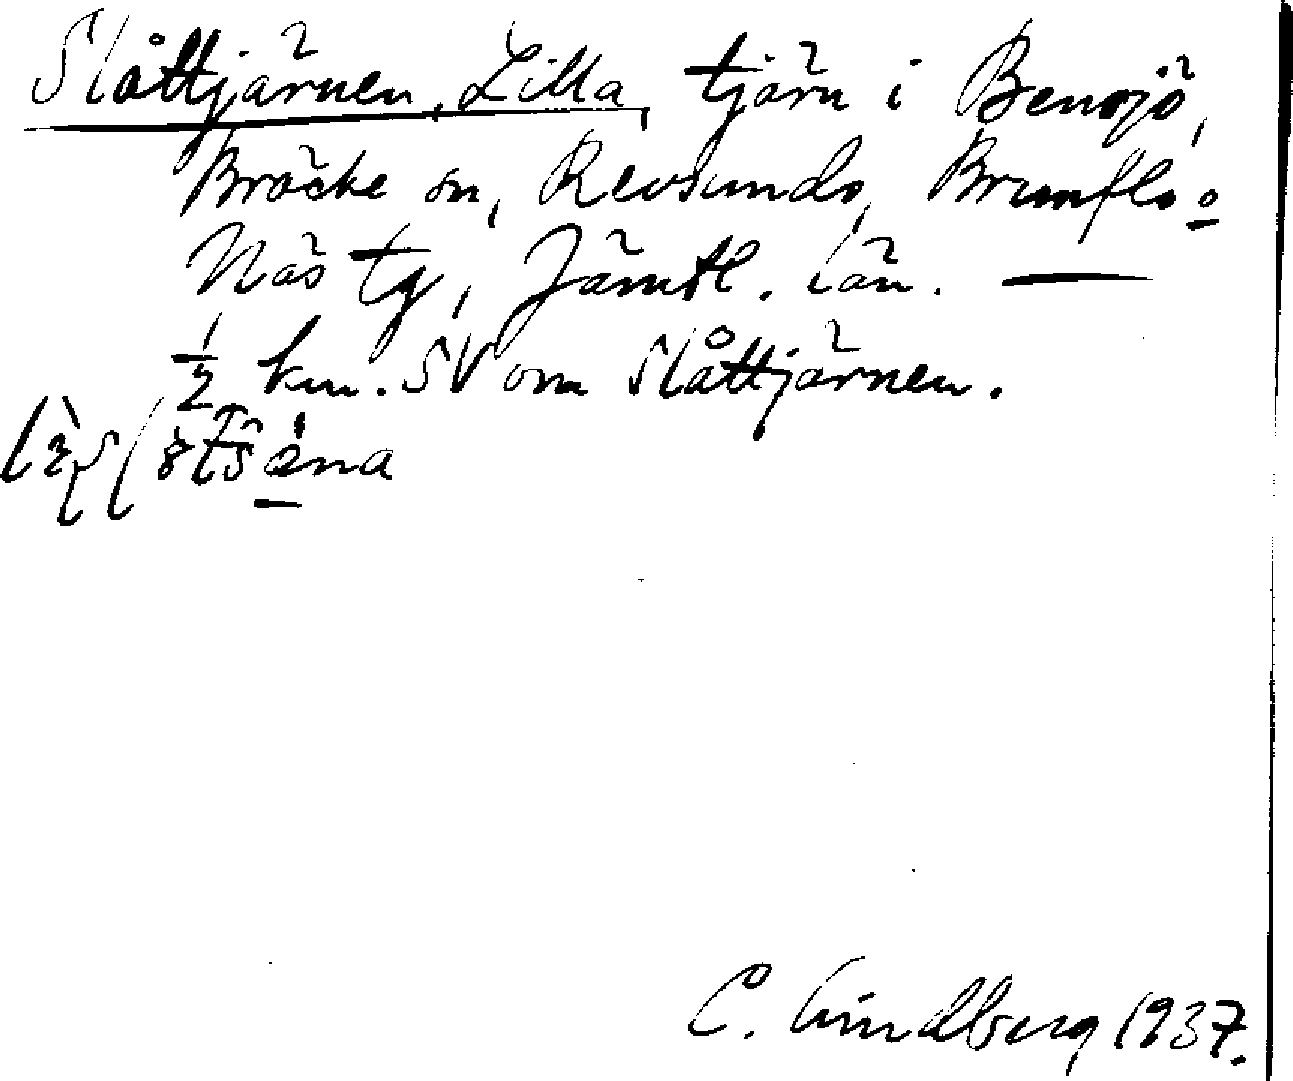 Slåttjärnen, Lilla, tjärn i Bensjö,
Bräcke sn, Revsunds, Brunflo o
Näs tg, Jämtl. län. —
½ km. SV om Slåttjärnen.
C. Lindberg 1937.